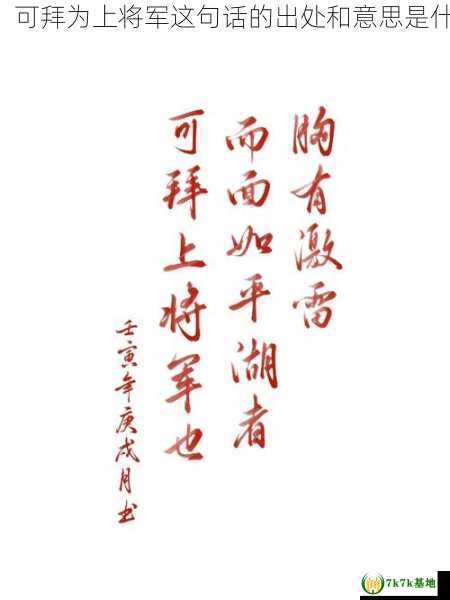 可拜为上将军这句话的出处和意思是什
胸有激雷
而面如平湖者
可拜上将军也
壬寅年庚戌月书
7k7k基地